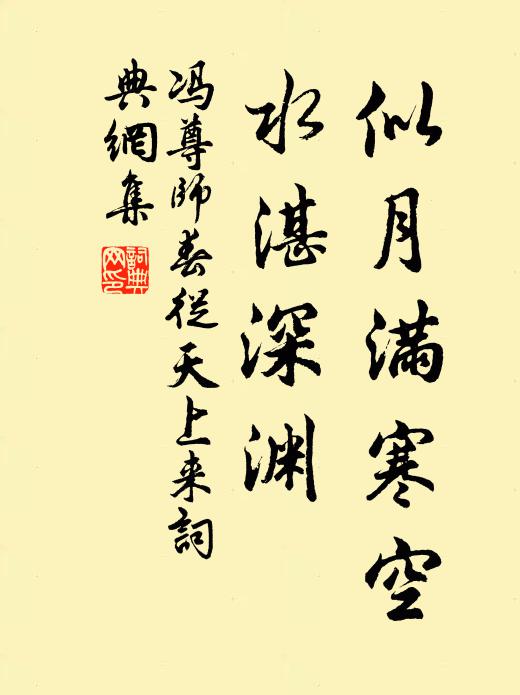 似月满寒空
水湛深渊
冯尊师春从天上来詞
典網集
詞典
网印